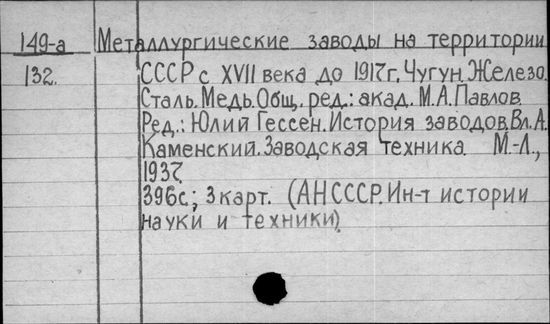 149-а Металлургические заводы на территории
132. СССР с XVII века до 1917г. Чугун. Железо.
Сталь. Медь. Общ. ред.: акад. М.А. Павлов.
Ред.: Юлий Гессен. История заводов. Вл. А.
Каменский. Заводская техника. М.-Л.,
1937.
396с.; 3 карт. (АН СССР. Ин-т истории
науки и техники).